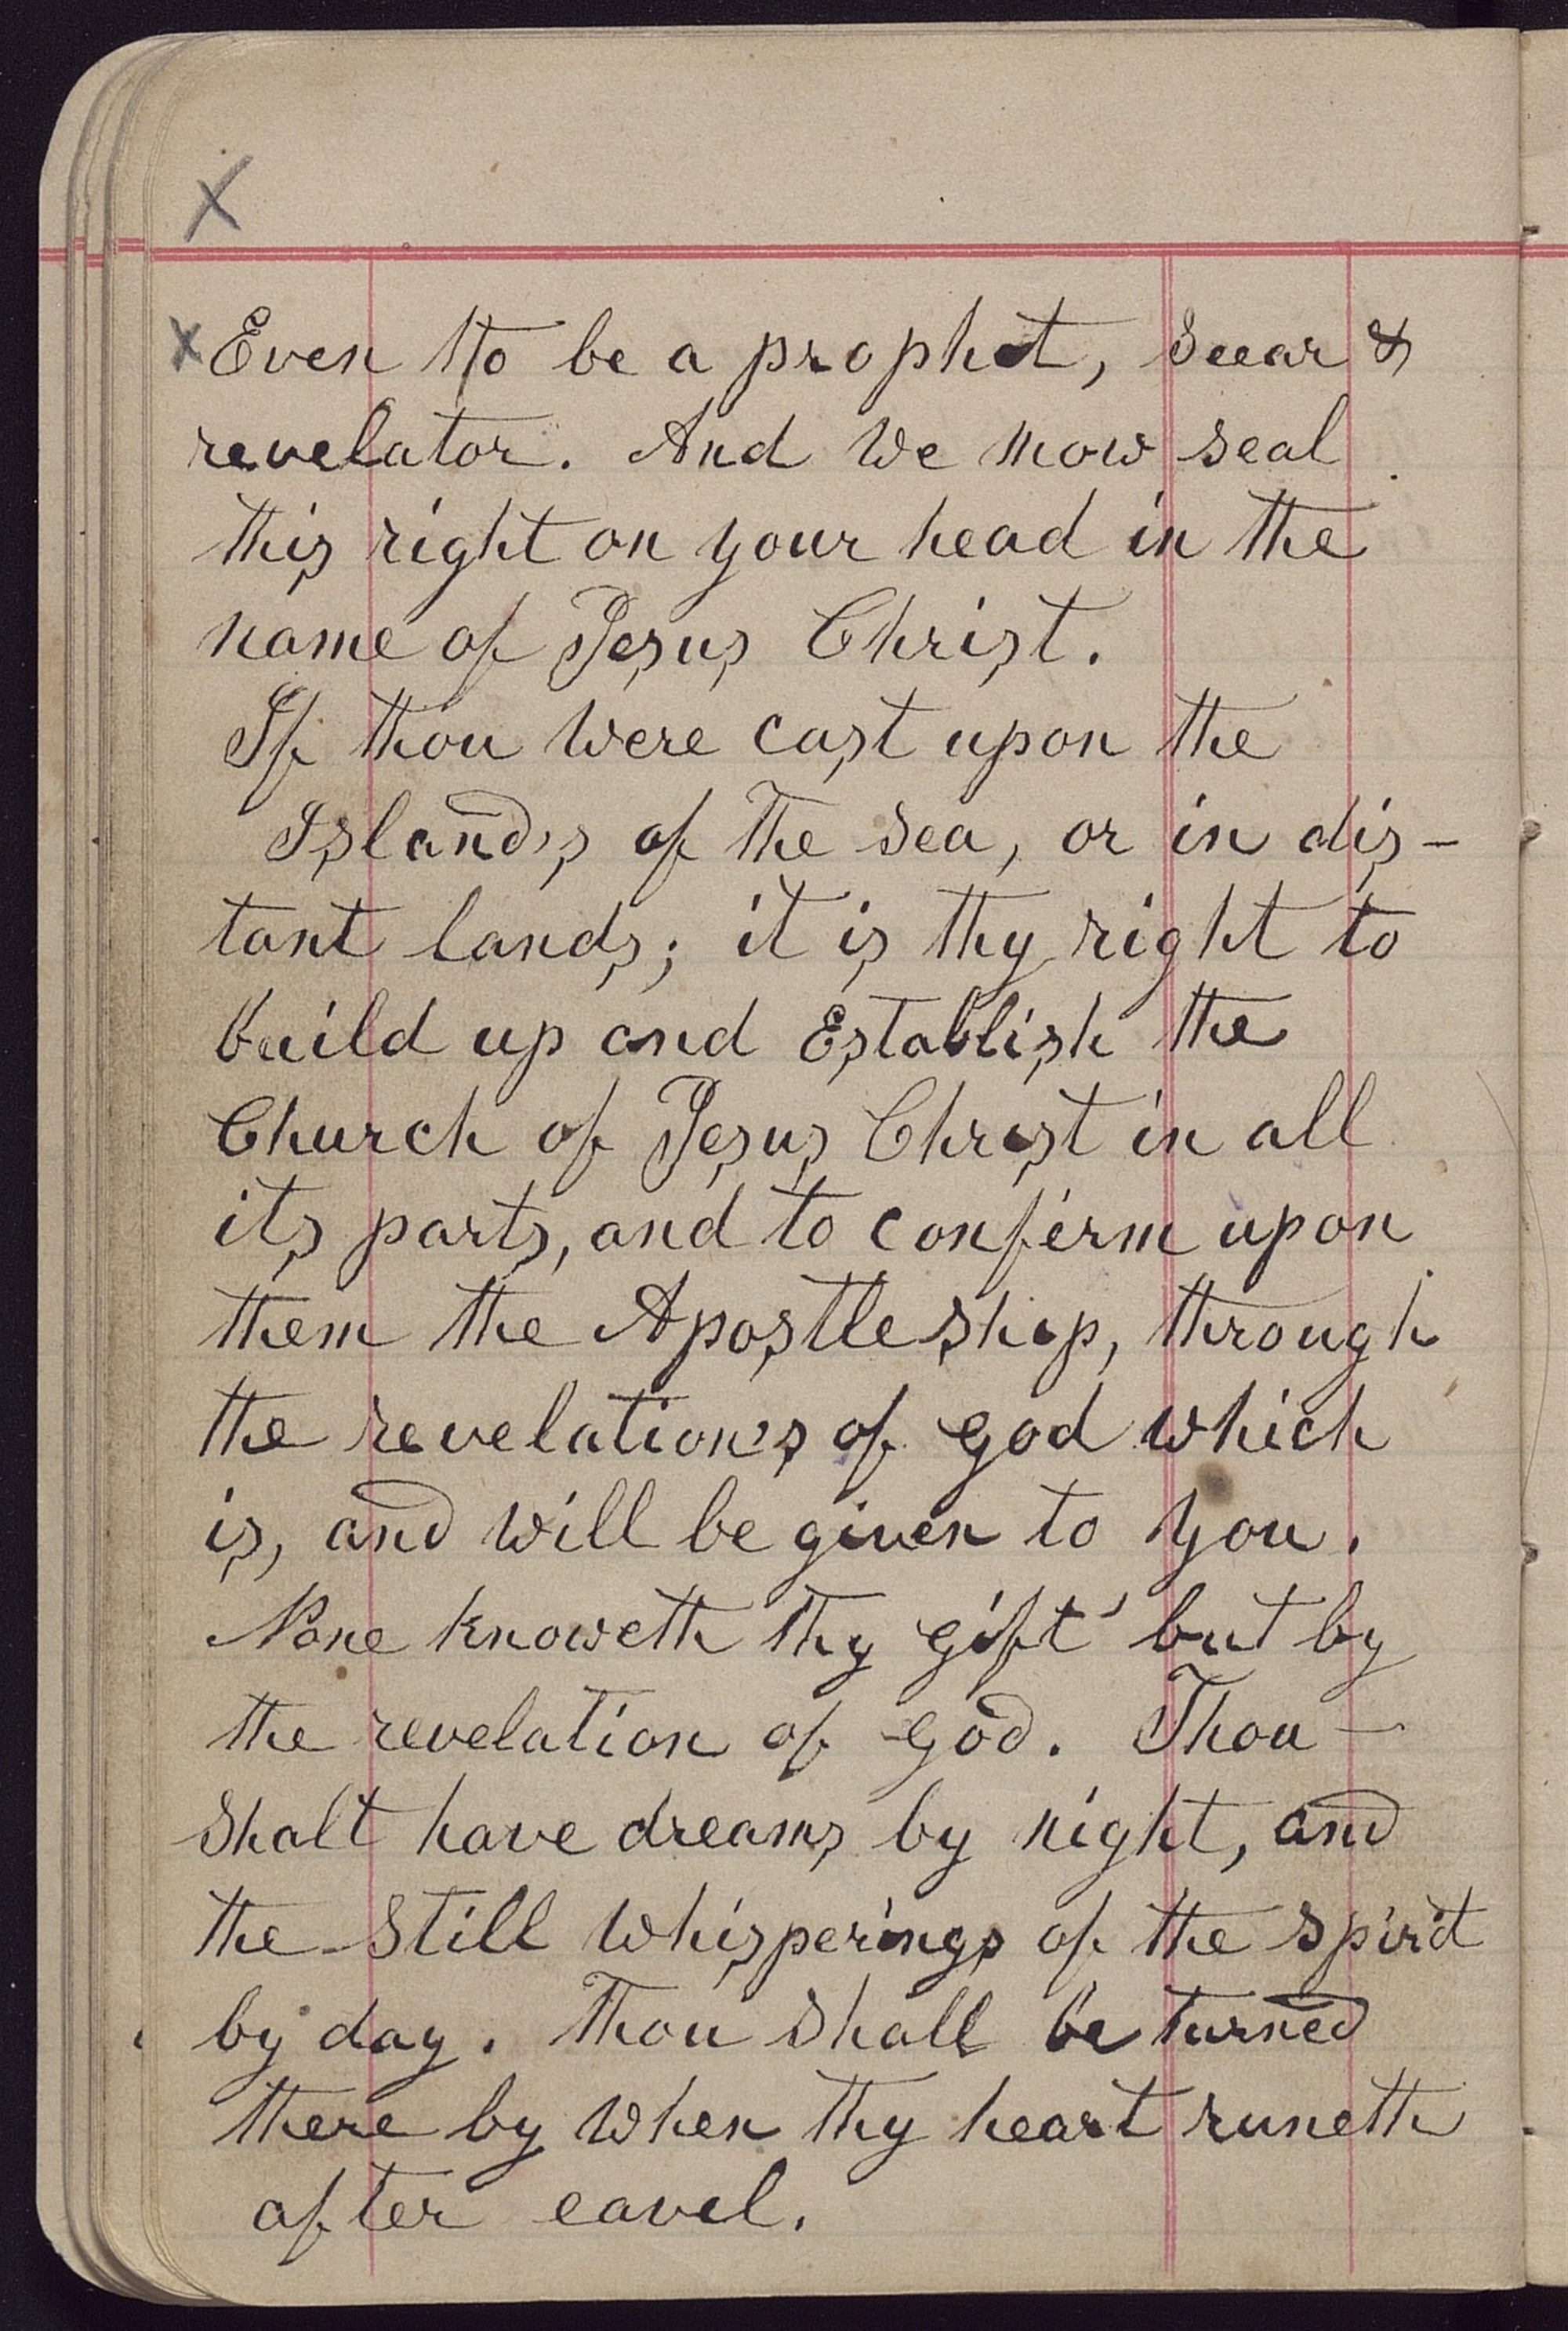 X
x Even to be a prophet, seear &
revelator. And we now seal
this right on your head in the
name of Jesus Christ.
If thou were cast upon the
Island's of the sea, or in dis-
tant lands; it is thy right to
build up and Establish the
Church of Jesus Christ in all
its parts, and to confirm upon
them the Apostleship, through
the revelation's of god which
is, and will be given to you.
None knoweth thy gift' but by
the revelation of god. Thou
shalt have dreams by night, and
the still whisperings of the spirit
by day. Thou shall be turned
there by when thy heart runeth
after eavel.